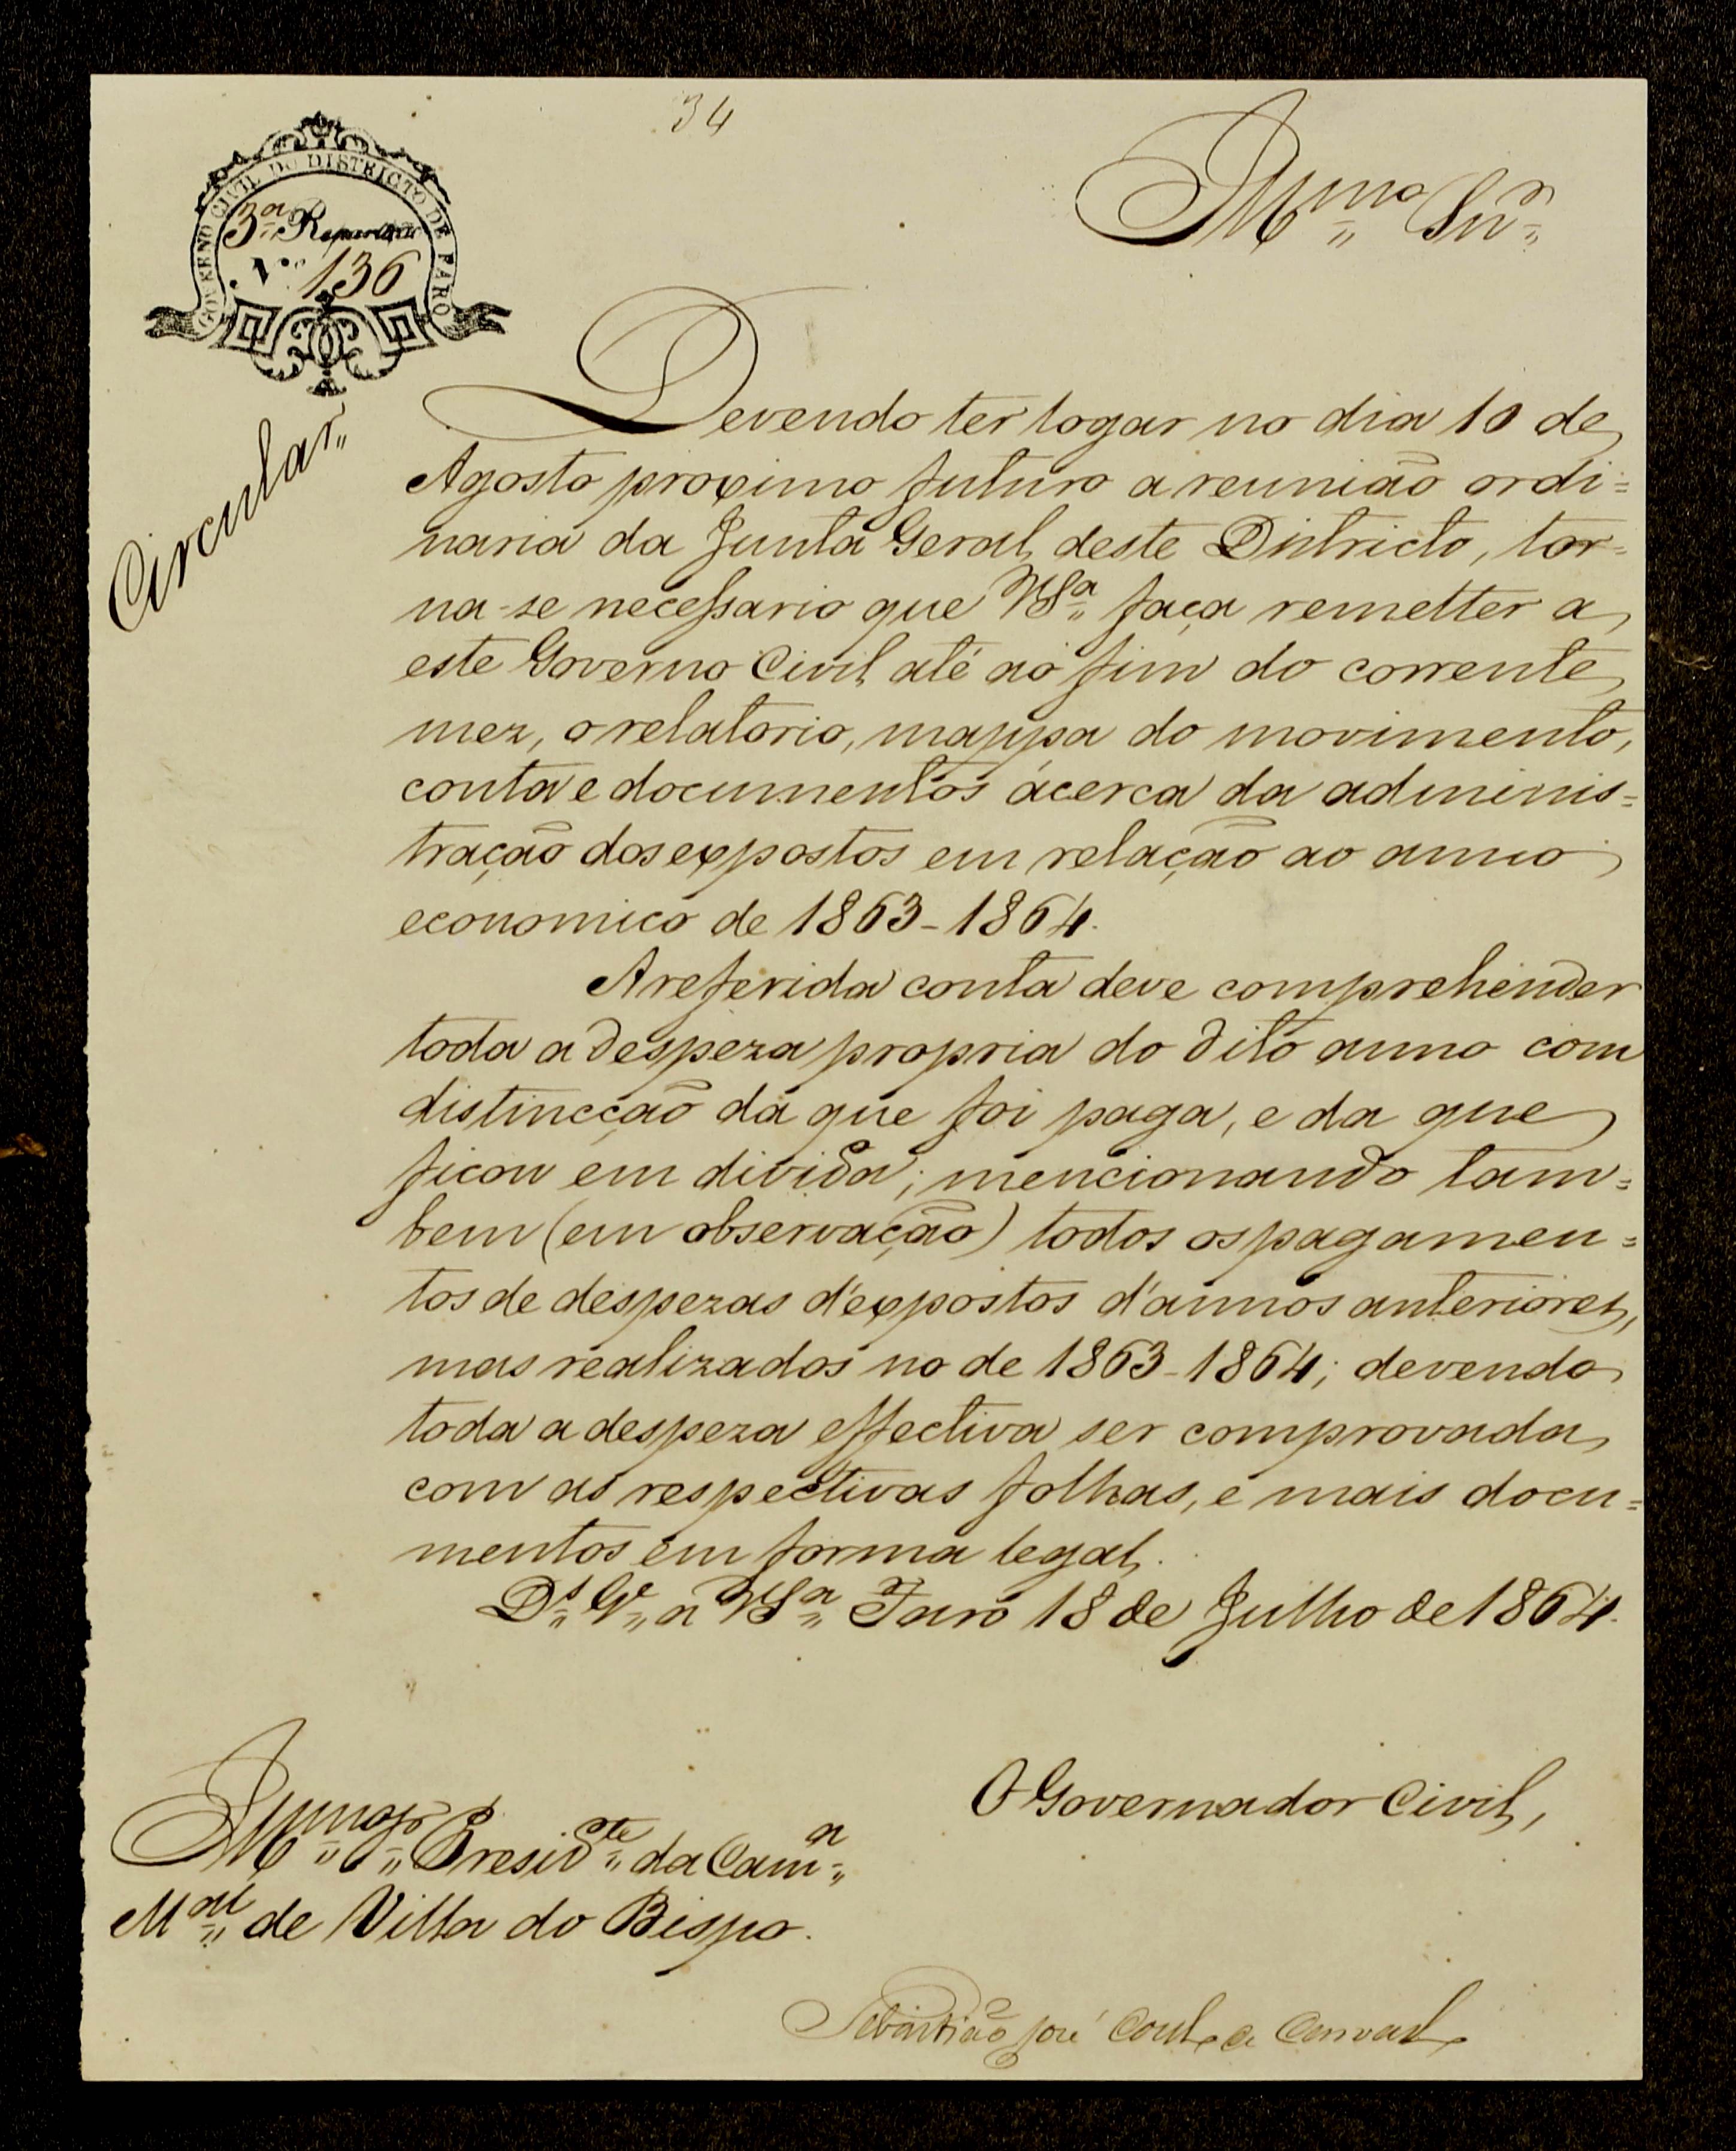 34
GOVERNO CIVIL DO DISTRICTO DE FARO
3.ª Repartição
N.º 136
Illmo Snr
Circular
Devendo ter logar no dia 10 de
Agosto proximo futuro a reunião ordi=
naria da Junta Geral deste Districto, tor=
na-se necessario que VSª faça remetter a
este Governo Civil até ao fim do corrente
mez, o relatorio, mappa do movimento,
conta e documentos ácerca da adminis=
tração dos expostos em relação ao anno
economico de 1863-1864.
A referida conta deve comprehender
toda a despeza propria do dito anno com
distincção da que foi paga, e da que
ficou em divida; mencionando tam=
bem (em observação) todos os pagamen=
tos de despezas d'expostos d'annos anteriores,
mas realizados no de 1863-1864; devendo
toda a despeza effectiva ser comprovada
com as respectivas folhas, e mais docu=
mentos em forma legal.
Ds Ge a VSª Faro 18 de Julho de 1864.
O Governador Civil,
Illmo Sr Preside da Camª
Mal de Villa do Bispo.
Sebastião José